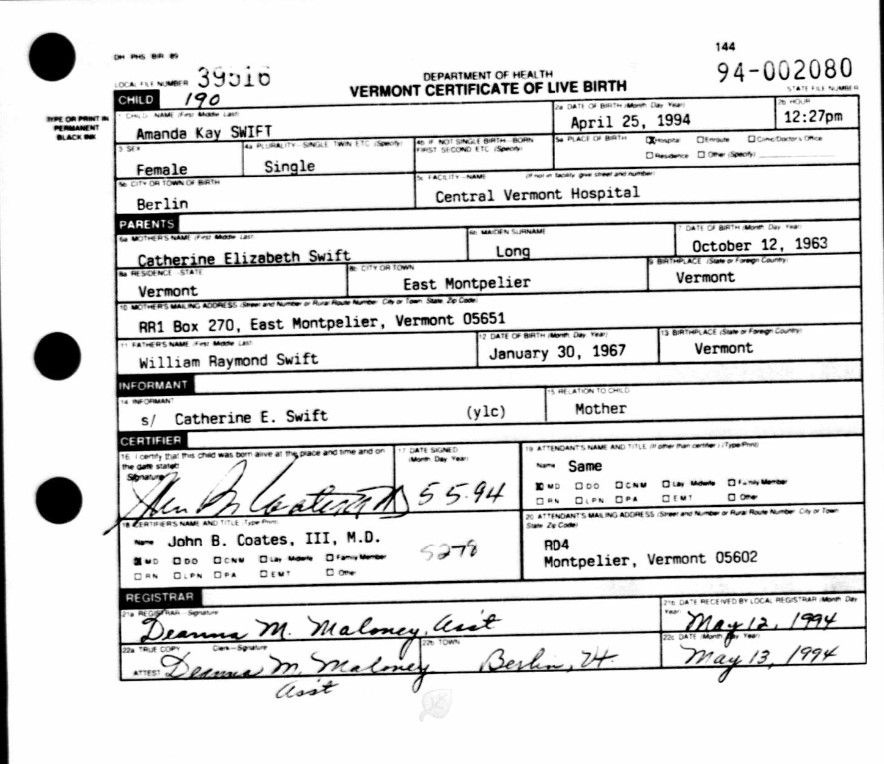 144
DH PHS BIR 89
LOCAL FILE NUMBER 39516
DEPARTMENT OF HEALTH
94-002080
VERMONT CERTIFICATE OF LIVE BIRTH
STATE FILE NUMBER
CHILD 190
TYPE OR PRINT IN
PERMANENT
BLACK INK
1 CHILD NAME (First Middle Last)
2a DATE OF BIRTH (Month Day Year)
2b HOUR
Amanda Kay SWIFT
April 25, 1994
12:27pm
3 SEX
4a PLURALITY—SINGLE TWIN ETC (Specify)
4b IF NOT SINGLE BIRTH—BORN
FIRST SECOND ETC (Specify)
5a PLACE OF BIRTH
Hospital Enroute Clinic/Doctor's Office
Residence Other (Specify)
Female
Single
5b CITY OR TOWN OF BIRTH
5c FACILITY—NAME (If not in facility give street and number)
Berlin
Central Vermont Hospital
PARENTS
6a MOTHER'S NAME (First Middle Last)
6b MAIDEN SURNAME
7 DATE OF BIRTH (Month Day Year)
Catherine Elizabeth Swift
Long
October 12, 1963
8a RESIDENCE STATE
8b CITY OR TOWN
9 BIRTHPLACE (State or Foreign Country)
Vermont
East Montpelier
Vermont
10 MOTHER'S MAILING ADDRESS (Street and Number or Rural Route Number City or Town State Zip Code)
RR1 Box 270, East Montpelier, Vermont 05651
11 FATHER'S NAME (First Middle Last)
12 DATE OF BIRTH (Month Day Year)
13 BIRTHPLACE (State or Foreign Country)
William Raymond Swift
January 30, 1967
Vermont
INFORMANT
14 INFORMANT
15 RELATION TO CHILD
s/ Catherine E. Swift (ylc)
Mother
CERTIFIER
16 I certify that this child was born alive at the place and time and on
the date stated
Signature
17 DATE SIGNED
(Month Day Year)
5 5 94
19 ATTENDANT'S NAME AND TITLE (If other than certifier) (Type/Print)
Name Same
MD DO CNM Lay Midwife Family Member
RN LPN PA EMT Other
18 CERTIFIER'S NAME AND TITLE (Type/Print)
Name John B. Coates, III, M.D.
MD DO CNM Lay Midwife Family Member
RN LPN PA EMT Other
5278
20 ATTENDANT'S MAILING ADDRESS (Street and Number or Rural Route Number City or Town
State Zip Code)
RD4
Montpelier, Vermont 05602
REGISTRAR
21a REGISTRAR—Signature
21b DATE RECEIVED BY LOCAL REGISTRAR (Month Day
Year)
Deanna M. Maloney, Asst
May 12, 1994
22a TRUE COPY Clerk—Signature
22b TOWN
22c DATE (Month Day Year)
ATTEST Deanna M. Maloney
Berlin, Vt.
May 13, 1994
Asst